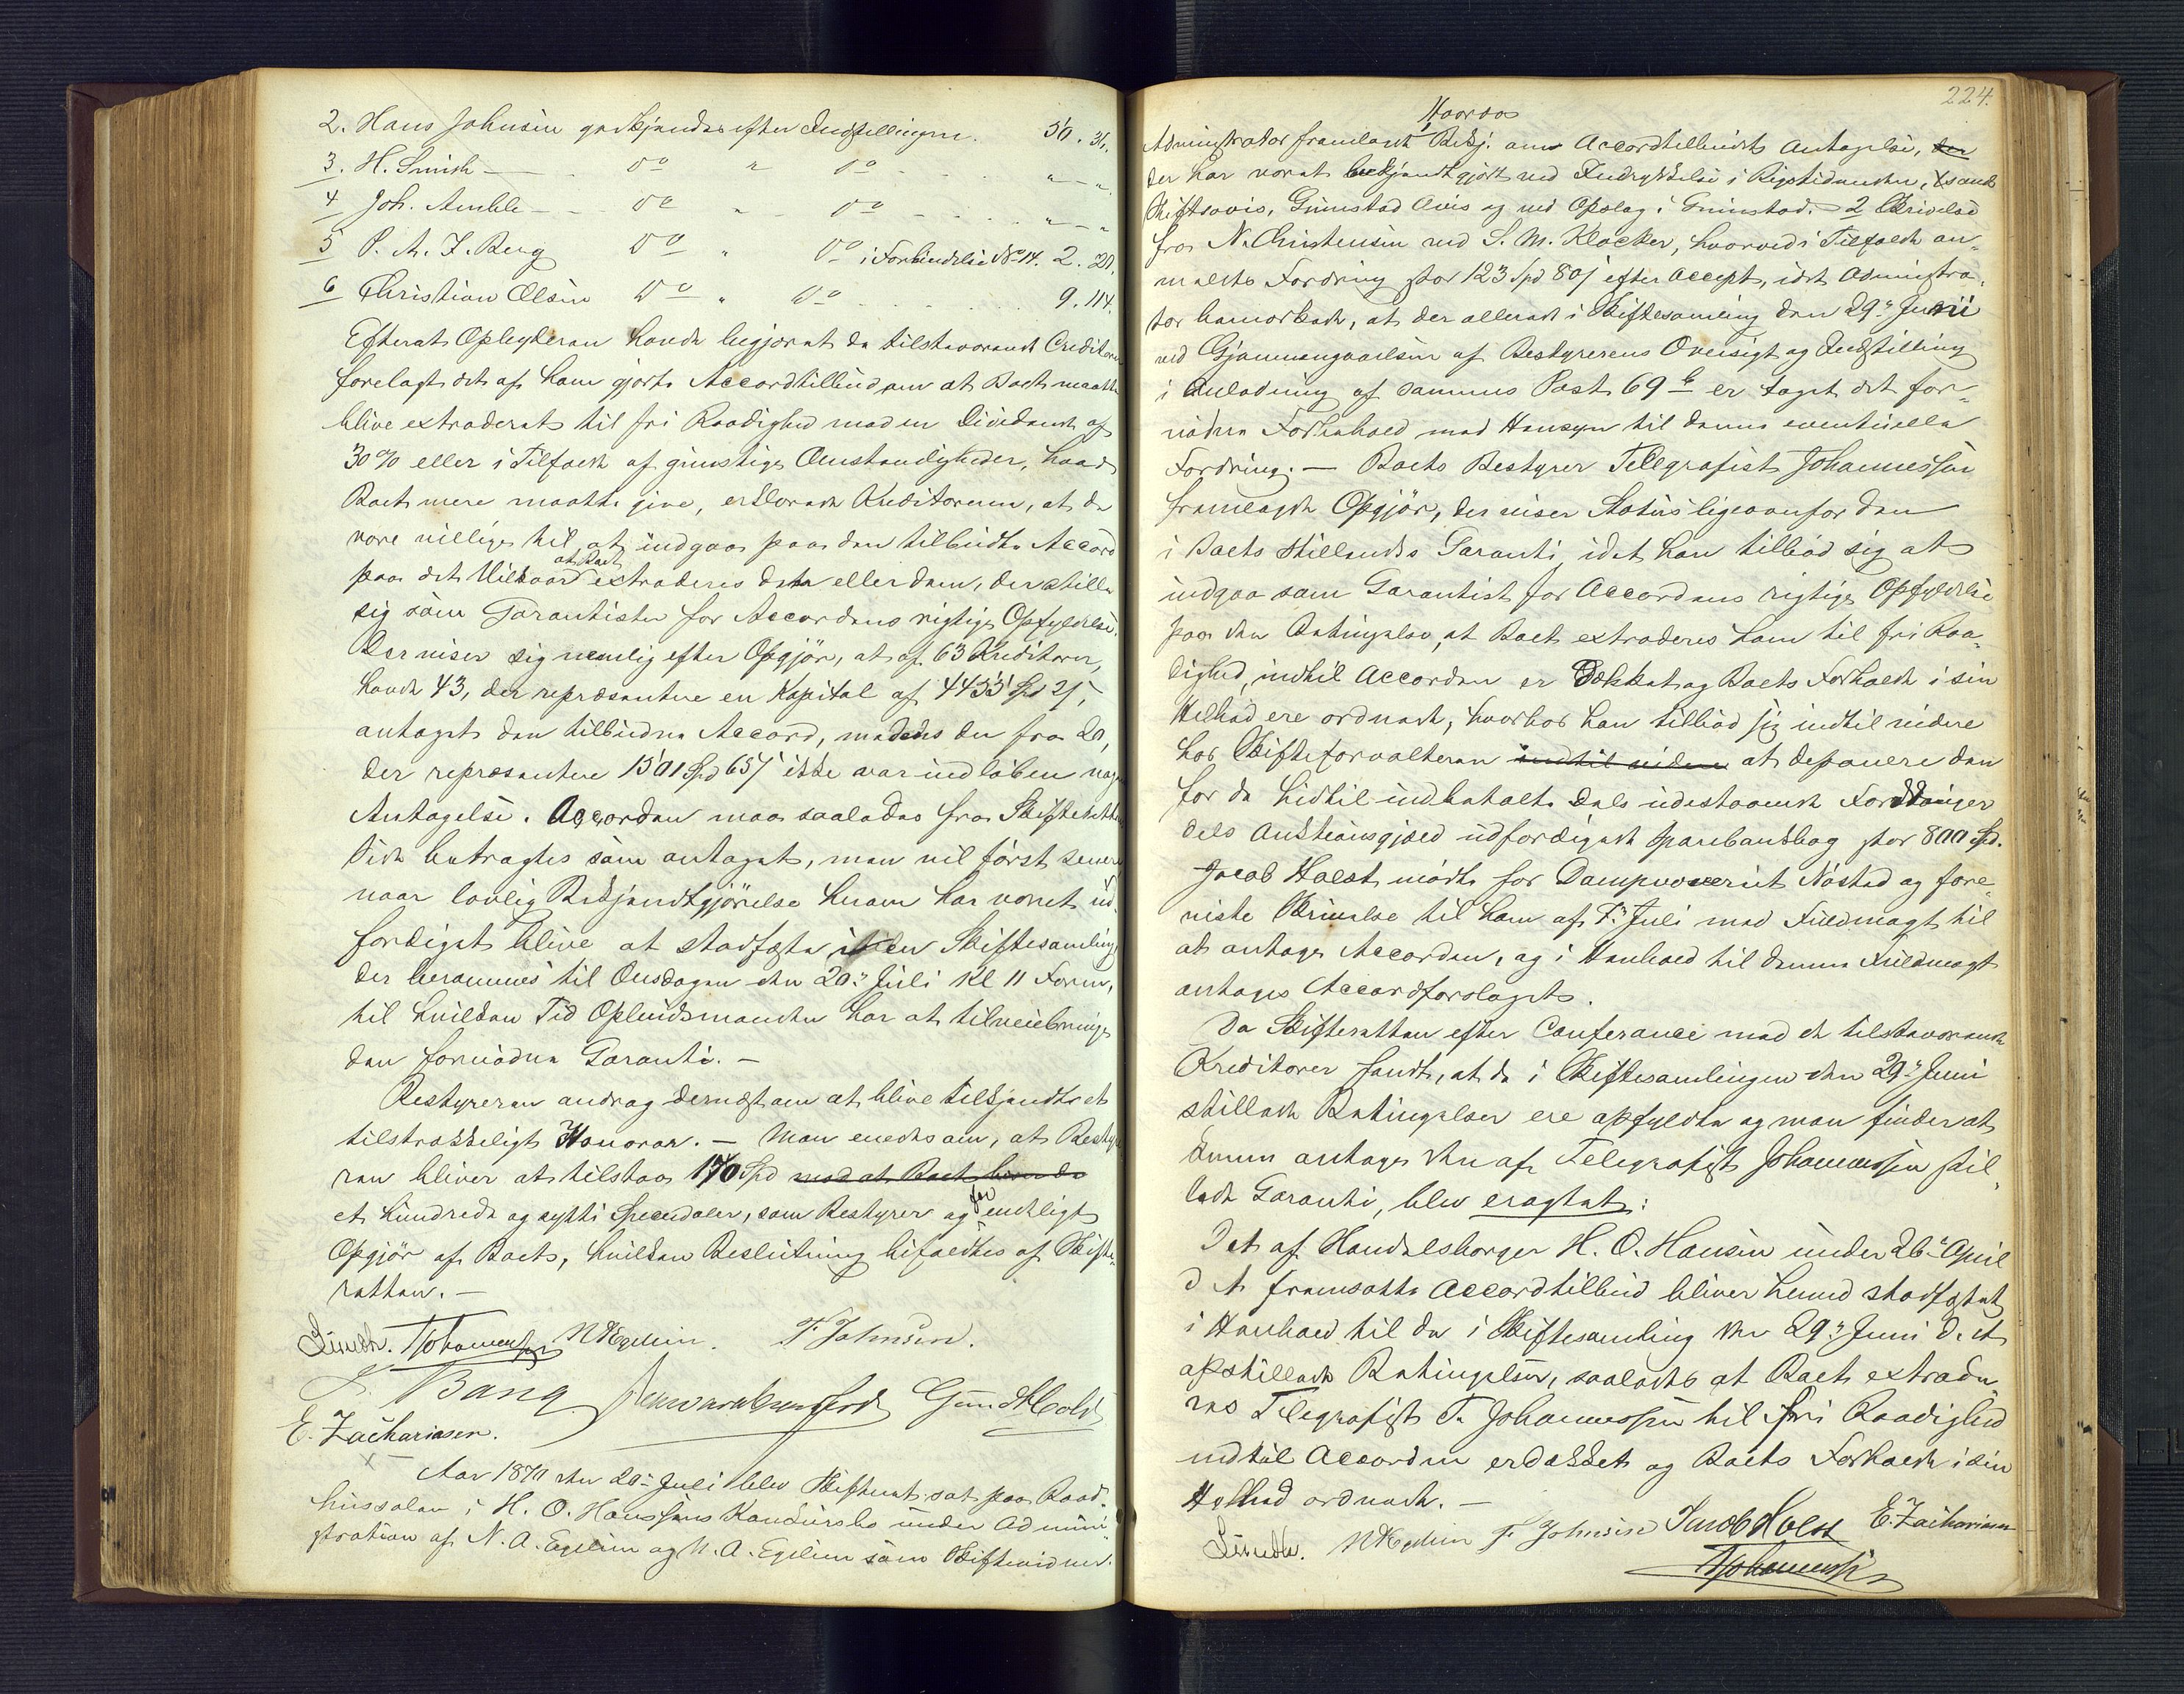 2. Hans Johnsen godkjendes efter Indstillingen. 50. 30.
3. H. Smith — do " do " "
4 Joh. Amble — do " do " "
5 P. A. J. Berg do " do i Forbindelse No 14. 2. 20.
6 Christian Olsen do " do 9. 114.
Efterat Opbyderen havde begjæret de tilstæværende Creditorer
forelagt det af ham gjorte Accordtilbud om at Boet maatte
blive extraderet til fri Raadighed mod en Dividende af
30 % eller i Tilfælde af gunstige Omstændigheder, hvad
Boet mere maatte give, erklærede Kreditorerne, at de
vare villige til at indgaa paa den tilbudte Accord
paa det Vilkaar at Boet extraderes den eller dem, der stiller
sig som Garantister for Accordens rigtige Opfyldelse.
Der viser sig nemlig efter Opgjør, at af 63 Kreditorer,
havde 43, der repræsentere en Kapital af 4455 Spd 21,
antaget den tilbudne Accord, medens der fra 20,
der repræsentere 1501 Spd 65 / ikke var indløben nogen
Antagelse. Accorden maa saaledes fra Skifterettens
Side betragtes som antaget, men vil først senere
naar lovlig Bekjendtgjørelse herom har været ud-
færdiget blive at stadfæste i en Skiftesamling
der berammes til Onsdagen den 20de Juli Kl 11 Form,
til hvilken Tid Opbudsmanden har at tilveiebringe
den fornødne Garanti. —
Bestyreren androg dernæst om at blive tilkjendt et
tilstrækkeligt Honorar. — Man enedes om, at Besty-
ren bliver at tilstaa 170 Spd med at Boet
et hundrede og sytti Speciedaler, som Bestyrer og for endeligt
Opgjør af Boet, hvilken Beslutning bifaldtes af Skifte-
retten. —
Lindth. T Johannessen N A Egelien. F. Johnsen.
Bang Gund Hold
E. Zachariasen.
Aar 1870 den 20de Juli blev Skifteret sat paa Raad-
hussalen i H. O. Hanssens Konkursbo under Admini-
stration af N. A. Egelien og N. A. Egelien som Skiftevidner.
224.
Hvorda
Administrator fremlagde 1 Bekj. om Accordtilbudets Antagelse, der
der har været bekjendtgjort ved Indrykkelse i Rigstidenden, Xsands
Stiftsavis, Grimstad Avis og ved Opslag i Grimstad. — 2 Skrivelse
fra N. Christensen ved S. M. Klocker, hvorved i Tilfælde an-
meldte Fordring stor 123 Spd 80 / efter Accept, idet Administra-
tor bemærkede, at der allerede i Skiftesamling den 29de Juni
ved Gjennemgaaelsen af Bestyrerens Oversigt og Indstilling
i Anledning af sammes Post 69 b er taget det for-
nødne Forbehold med Hensyn til denne eventuelle
Fordring. — Boets Bestyrer Telegrafist Johannessen
fremlagde Opgjør, der viser Status ligeovenfor den
i Boets stillende Garanti, idet han tilbød sig at
indgaa som Garantist for Accordens rigtige Opfyldelse
paa den Betingelse, at Boet extraderes ham til fri Raa-
dighed, indtil Accorden er Dækket og Boets Forhold i sin
Helhed ere ordnede, hvorhos han tilbød sig indtil videre
hos Skifteforvalteren indtil videre at deponere den
for de hidtil indbetalte Dels udestaaende Fordringer
dels Auktionsgjæld udfærdigede Sparebanksbog stor 800 Spd.
Jacob Holst mødte for Dampvæveriet Nøsted og fore-
viste Skrivelse til ham af 7. Juli med Fuldmagt til
at antage Accorden, og i Henhold til denne Fuldmagt
antages Accordforslaget.
Da Skifteretten efter Conferance med de tilstæværende
Kreditorer fandt, at de i Skiftesamlingen den 29de Juni
stillede Betingelser ere opfyldte og man finder at
kunne antage den af Telegrafist Johannessen stil-
lede Garanti, blev eragtet:
Det af Handelsborger H. O. Hansen under 26de April
d. A. fremsatte Accordtilbud bliver herved stadfæstet
i Henhold til de i Skiftesamling den 29de Juni d. A.
opstillede Betingelser, saaledes at Boet extrade-
res Telegrafist T. Johannessen til fri Raadighed
indtil Accorden er dækket og Boets Forhold i sin
Helhed ordnede. —
Lindth. N A Egelien F. Johnsen Jacob Holst E. Zachariasen
T Johannessen